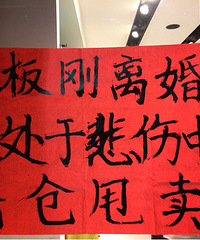 板刚离婚
处于悲伤中
仓甩卖